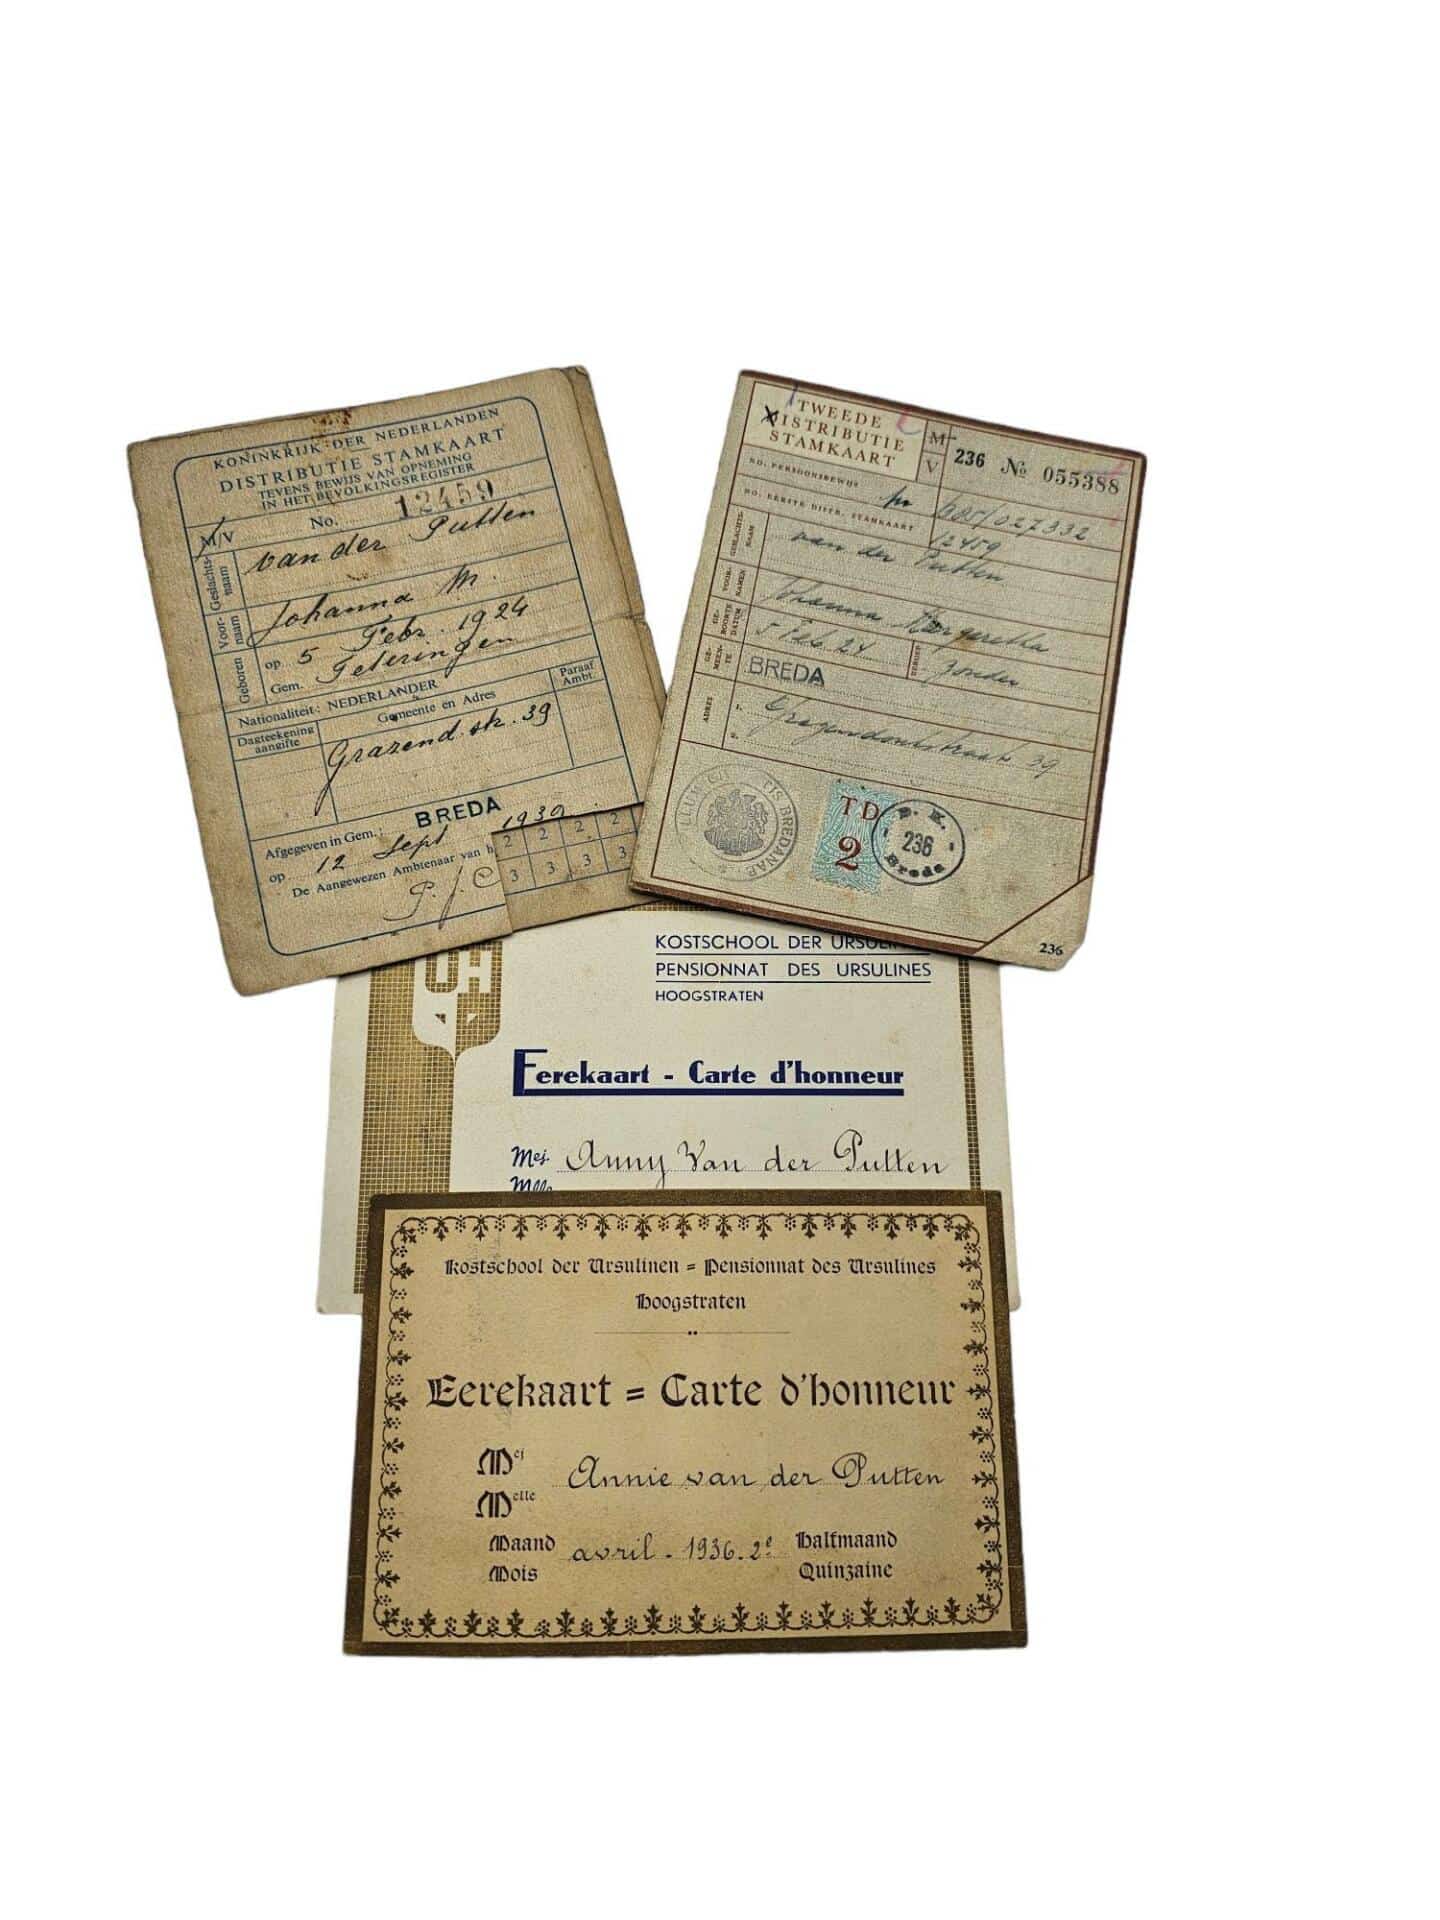 KONINKRIJK DER NEDERLANDEN
DISTRIBUTIE STAMKAART
TEVENS BEWIJS VAN OPNEMING
IN HET BEVOLKINGSREGISTER
No. 12459
M/V
Geslachts-
naam
van der Putten
Voor-
naam
Johanna M.
Geboren
op 5 Febr. 1924
Gem. Teteringen
Nationaliteit: NEDERLANDER
Dagteekening
aangifte
Gemeente en Adres
Paraaf
Ambt.
Grazend. str. 39
BREDA
Afgegeven in Gem.:
op 12 Sept 1939
De Aangewezen Ambtenaar van
2 2 2 2
3 3 3 3
TWEEDE
DISTRIBUTIE
STAMKAART
M
V
236 No 055388
NO. PERSOONSBEWIJS
027332
NO. EERSTE DISTR. STAMKAART
12459
GESLACHTS-
NAAM
van der Putten
VOOR-
NAMEN
Johanna Margaretha
GE-
BOORTE
DATUM
5 Feb. 24
BEROEP
zonder
GE-
MEEN-
TE
BREDA
ADRES
1.
39
2.
TD
2
D. K.
- 236 -
Breda
236
KOSTSCHOOL DER
PENSIONNAT DES URSULINES
HOOGSTRATEN
UH
Eerekaart - Carte d'honneur
Mej. Anny Van der Putten
Mlle
Kostschool der Ursulinen = Pensionnat des Ursulines
Hoogstraten
Eerekaart = Carte d'honneur
Mej
Annie van der Putten
Melle
Maand
avril - 1936. 2e
Halfmaand
Mois
Quinzaine